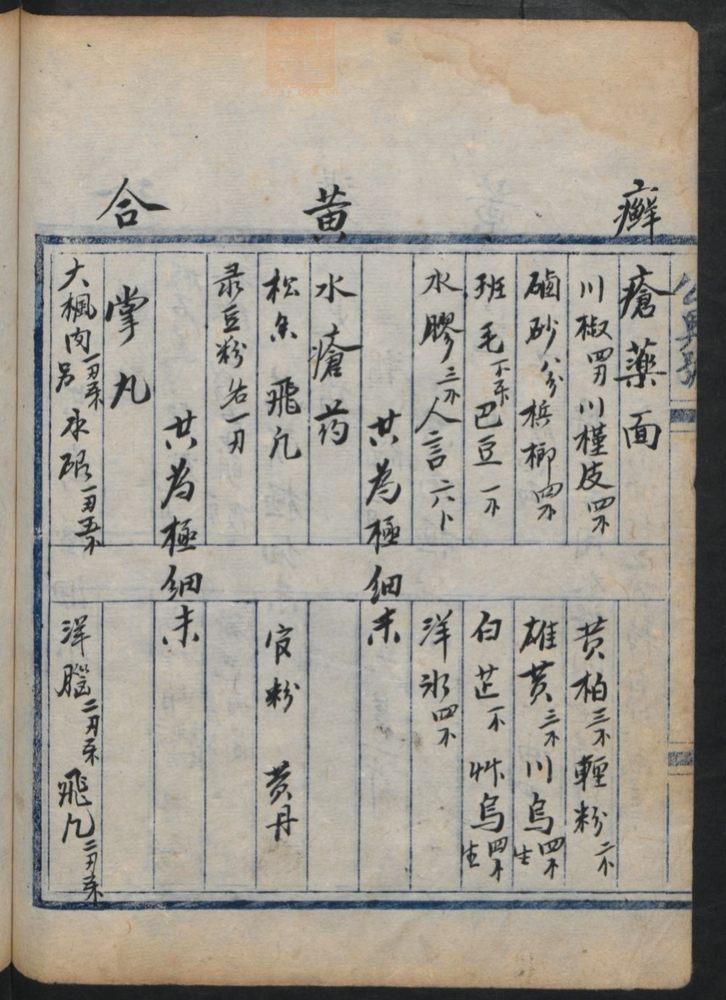 癬
瘡薬面
川椒四刃 川槿皮四不 黄柏三不 輕粉二不
硇砂八分 梹榔四不 雄黄三不 川烏四不生
班毛一不 巴豆一不 白芷一不 艸烏四不生
水膠三不 人言六卜 洋氷四不
共為極細末
黄
水瘡药
松香 飛凡 官粉 黄丹
彔豆粉 各一刃
共為極細末
合
掌丸
大楓肉一刃 水銀一刃五不 洋腦二刃 飛凡二刃